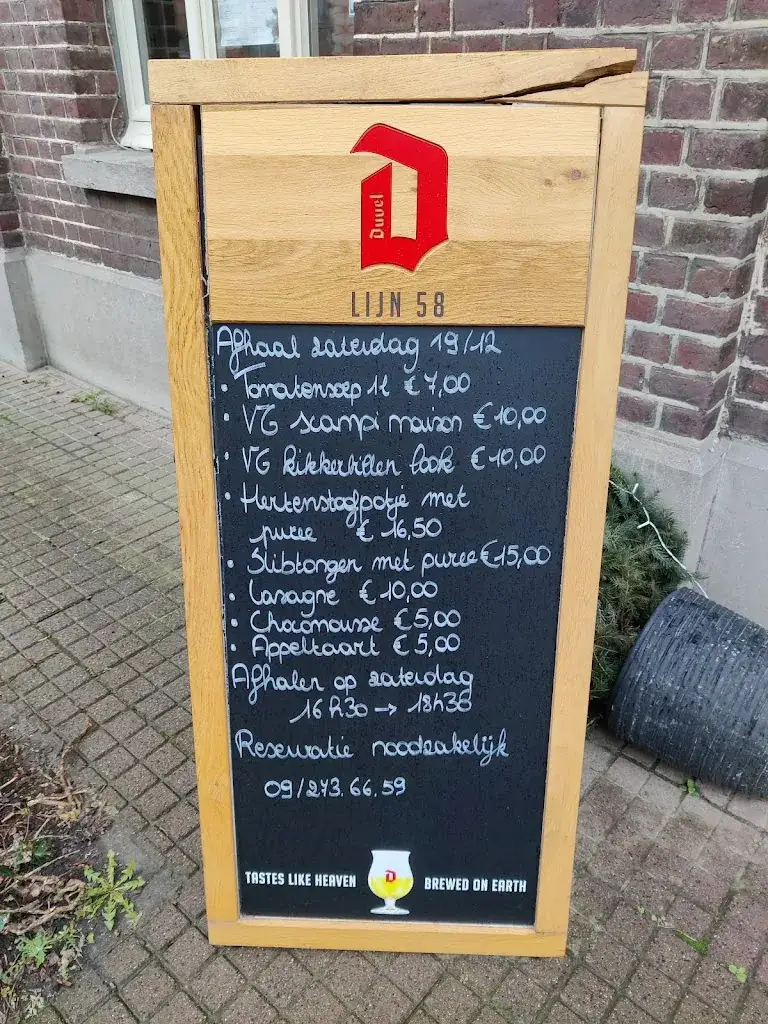 Duvel
LIJN 58
Afhaal zaterdag 19/12
• Tomatensoep 1l €7,00
• VG scampi maison €10,00
• VG kikkerbillen look €10,00
• Hertenstoofpotje met
puree € 16,50
• Slibtongen met puree €15,00
• Lasagne €10,00
• Chocomousse €5,00
• Appeltaart €5,00
Afhalen op zaterdag
16h30 → 18h30
Reservatie noodzakelijk
09/273.66.59
TASTES LIKE HEAVEN BREWED ON EARTH